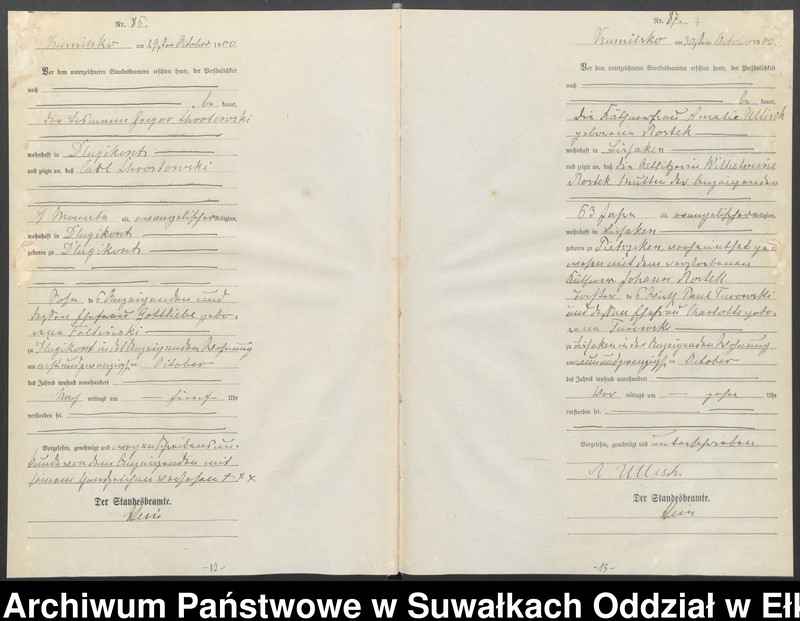 Nr. 86.
Krumilsko am 29ten October 1900.
Vor dem unterzeichneten Standesbeamten erschien heute, der Persönlichkeit
nach
be kannt,
der Losmann Gregor
wohnhaft in Dlugikont
und zeigte an, daß Carl
Monate alt, evangelischer Religion,
wohnhaft in Dlugikont
geboren zu Dlugikont
Sohn des Anzeigenden und
dessen Ehefrau Gottliebe gebo-
rene
zu Dlugikont in des Anzeigenden Wohnung
am achtundzwanzigsten October
des Jahres tausend neunhundert
Nach mittags um fünf Uhr
verstorben sei.
Vorgelesen, genehmigt und wegen Schreibensun-
kunde von dem Anzeigenden mit
seinem Handzeichen versehen + + +
Der Standesbeamte.
Hein
-12-
Nr. 87.
Krumilsko am 30ten October 1900.
Vor dem unterzeichneten Standesbeamten erschien heute, der Persönlichkeit
nach
be kannt,
die Käthnerfrau Amalie Ullisch
geborene Rostek
wohnhaft in Lissaken
und zeigte an, daß die Altsitzerin Wilhelmine
Rostek Mutter der Anzeigenden
63 Jahre alt, evangelischer Religion,
wohnhaft in Lissaken
geboren zu Pietrzyken, verheirathet ge-
wesen mit dem verstorbenen
Käthner Johann Rostek
Tochter des Wirth Paul Turowski
und dessen Ehefrau Charlotte gebo-
rene Turowski
zu Lissaken in der Anzeigenden Wohnung
am neunundzwanzigsten October
des Jahres tausend neunhundert
Vor mittags um zehn Uhr
verstorben sei.
Vorgelesen, genehmigt und unterschrieben
A Ullisch.
Der Standesbeamte.
Hein
-13-
Archiwum Państwowe w Suwałkach Oddział w Eł